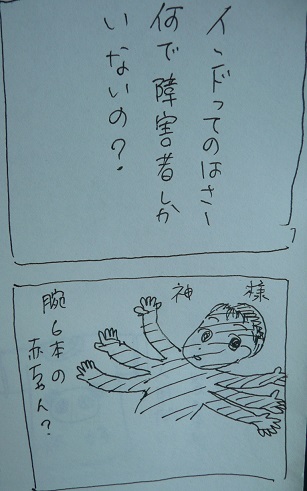 インドってのはさー
何で障害者しか
いないの?
神様
腕6本の
赤ちゃん?